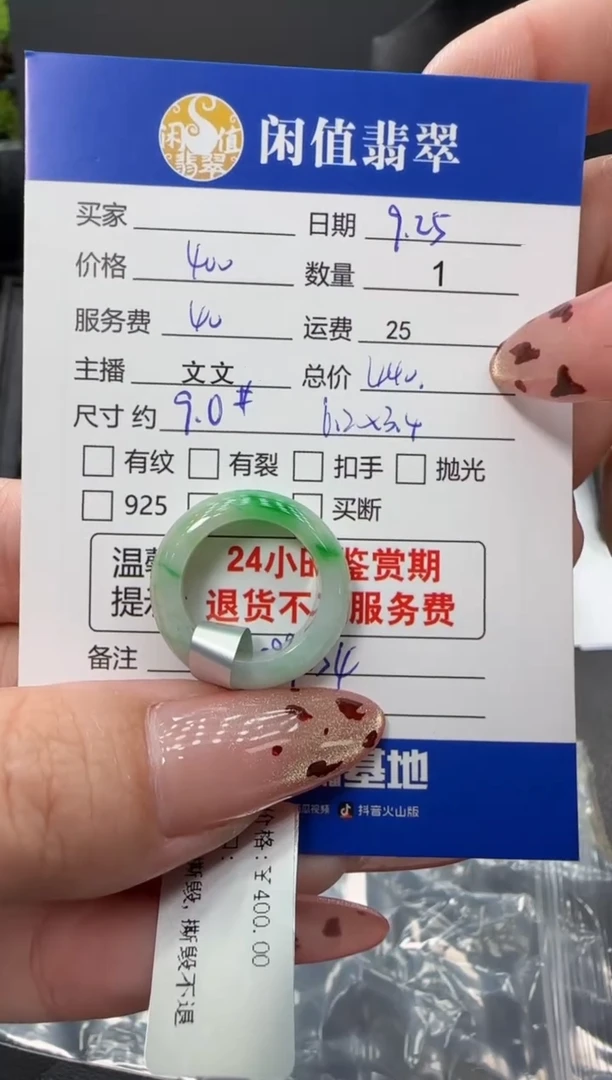 闲值翡翠
闲值翡翠
买家 日期 9.25
价格 400 数量 1
服务费 40 运费 25
主播 文文 总价 440.
尺寸约 9.0# 6.2×3.4
有纹 有裂 扣手 抛光
925 买断
温 24小时鉴赏期
提 退货不 服务费
备注
基地
抖音火山版
价格:￥400.00
撕毁,撕毁不退